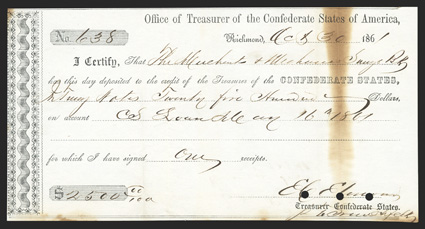 Office of Treasurer of the Confederate States of America,
No. 638 Richmond, Oct 30 1861
I Certify, That The Merchants & Mechanics Savgs Bk
has this day deposited to the credit of the Treasurer of the CONFEDERATE STATES,
in Treasy Notes Twenty five Hundred Dollars,
on account CS Loan Act May 16th 1861
for which I have signed one receipts.
$2500 00/100
Treasurer Confederate States.